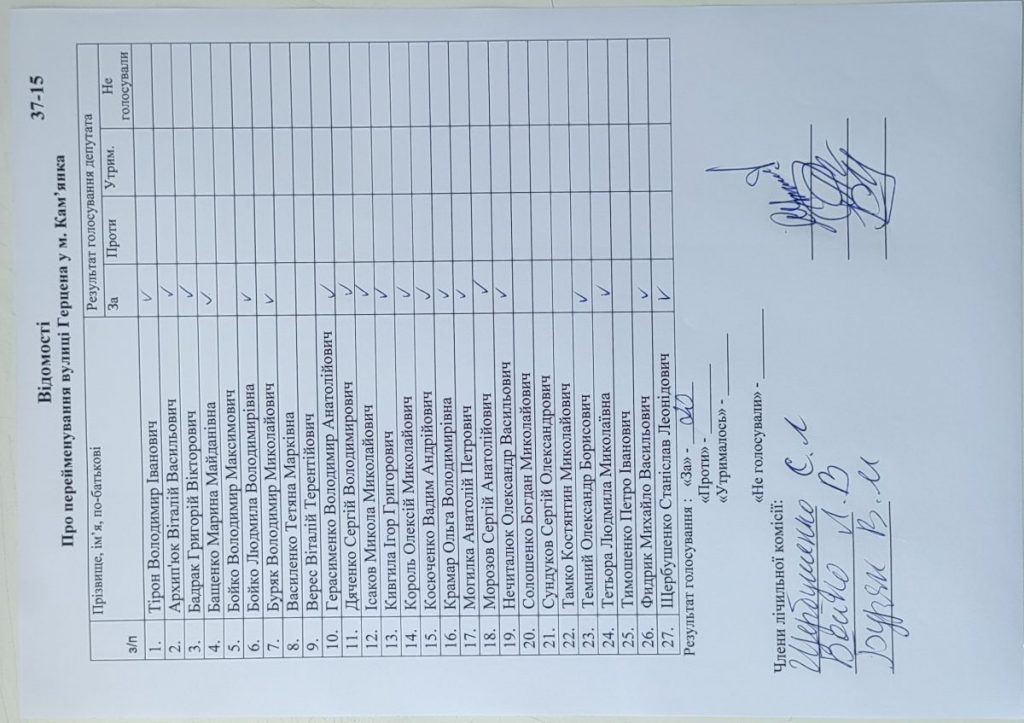 Відомості 37-15
Про перейменування вулиці Герцена у м. Кам’янка
з/п Прізвище, ім’я, по-батькові Результат голосування депутата
За Проти Утрим. Не голосували
1. Тірон Володимир Іванович ✓
2. Архип'юк Віталій Васильович ✓
3. Бадрак Григорій Вікторович ✓
4. Бащенко Марина Майданівна ✓
5. Бойко Володимир Максимович
6. Бойко Людмила Володимирівна ✓
7. Буряк Володимир Миколайович ✓
8. Василенко Тетяна Марківна
9. Верес Віталій Терентійович
10. Герасименко Володимир Анатолійович ✓
11. Дяченко Сергій Володимирович ✓
12. Ісаков Микола Миколайович ✓
13. Кивгила Ігор Григорович ✓
14. Король Олексій Миколайович ✓
15. Косюченко Вадим Андрійович ✓
16. Крамар Ольга Володимирівна ✓
17. Могилка Анатолій Петрович ✓
18. Морозов Сергій Анатолійович ✓
19. Нечиталюк Олександр Васильович ✓
20. Солошенко Богдан Миколайович
21. Сундуков Сергій Олександрович
22. Тамко Костянтин Миколайович
23. Темний Олександр Борисович ✓
24. Тетьора Людмила Миколаївна ✓
25. Тимошенко Петро Іванович
26. Фидрик Михайло Васильович ✓
27. Щербушенко Станіслав Леонідович ✓
Результат голосування : «За» - 20
«Проти» -
«Утрималось» -
«Не голосували» -
Члени лічильної комісії:
Щербушенко С.Л
Бойко Л.В
Буряк В.М